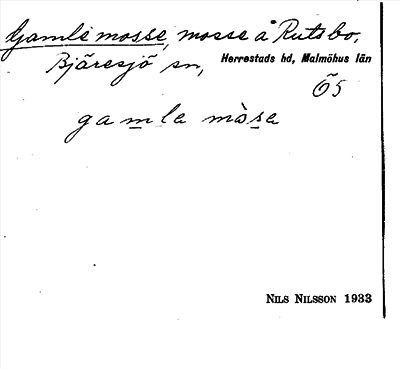 Gamle mosse, mosse å Rutsbo,
Bjäresjö sn, Herrestads hd, Malmöhus län
Ö5
gamla mòse
NILS NILSSON 1933